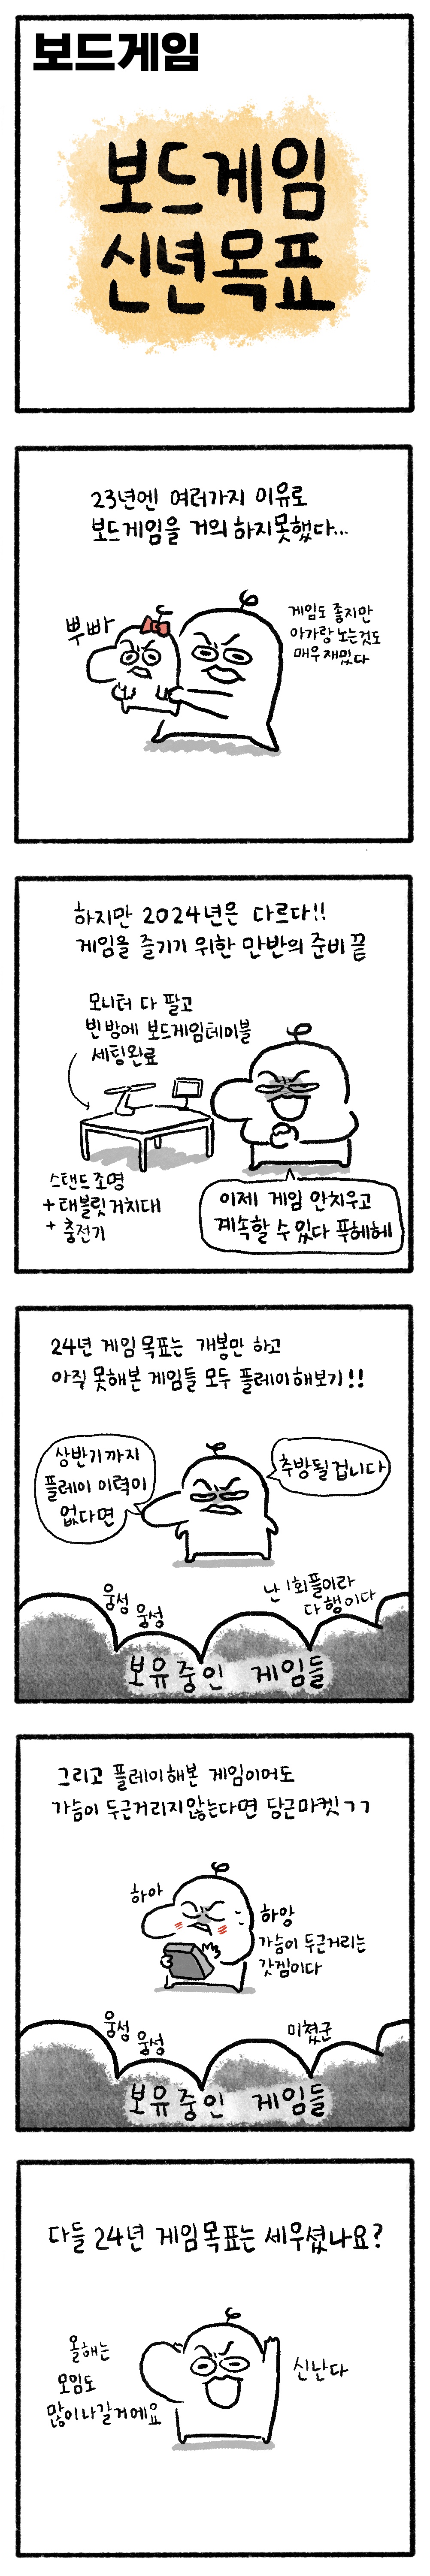 보드게임
보드게임
신년목표
23년엔 여러가지 이유로
보드게임을 거의 하지못했다...
뿌빠
게임도 좋지만
아가랑 노는것도
매우재밌다
하지만 2024년은 다르다!!
게임을 즐기기 위한 만반의 준비 끝
모니터 다 팔고
빈방에 보드게임테이블
세팅완료
스탠드조명
+태블릿거치대
+충전기
이제 게임 안치우고
계속할 수 있다 푸헤헤
24년 게임목표는 개봉만 하고
아직 못해본 게임들 모두 플레이해보기!!
상반기까지
플레이 이력이
없다면
추방될겁니다
웅성
웅성
난 1회플이라
다행이다
보유중인 게임들
그리고 플레이해본 게임이어도
가슴이 두근거리지않는다면 당근마켓ㄱㄱ
하아
하앙
가슴이 두근거리는
갓겜이다
웅성
웅성
미쳤군
보유중인 게임들
다들 24년 게임목표는 세우셨나요?
올해는
모임도
많이나갈거에요
신난다